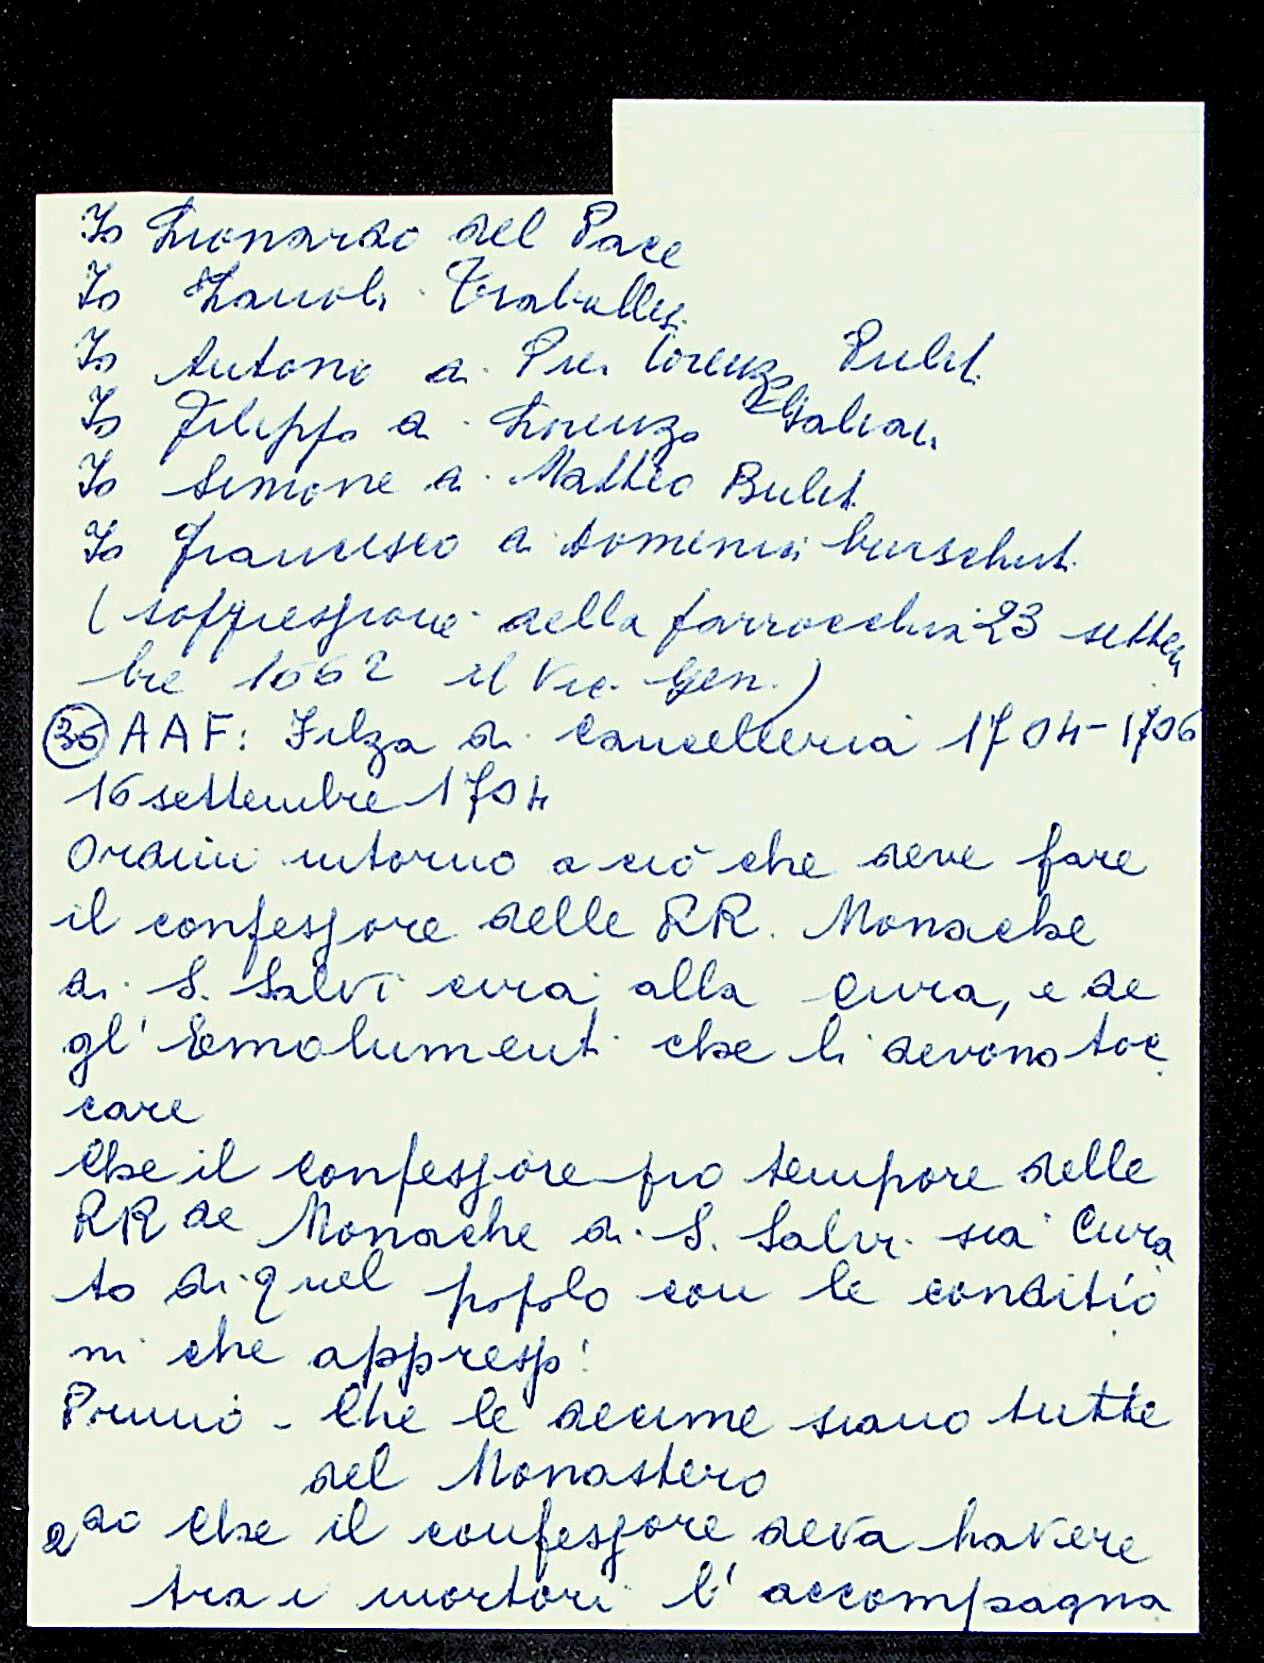 Io Lionardo del Pace
Io Zanobi Traballesi
Io Antonio di Pier Lorenzo Puliti
Io Filippo di Lorenzo
Io Simone di Matteo Buliti
Io Francesco di Domenico
(soppressione della parrocchia 23 settem
bre 1662 il Vic. Gen.)
36 AAF: Filza di Cancelleria 1704-1706
16 settembre 1704
Ordini intorno a ciò che deve fare
il confessore delle RR. Monache
di S. Salvi circa alla Cura, e de
gl' Emolumenti che li devono toc
care
Che il confessore pro tempore delle
RRde Monache di S. Salvi sia Cura
to di quel popolo con le conditio
ni che appresso:
Primo - Che le decime siano tutte
del Monastero
2do Che il confessore deva havere
tra i mortori l' accompagna